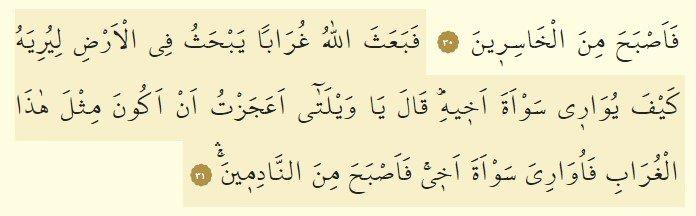 فَاَصْبَحَ مِنَ الْخَاسِر۪ينَ ﴿٣٠﴾ فَبَعَثَ اللّٰهُ غُرَاباً يَبْحَثُ فِي الْاَرْضِ لِيُرِيَهُ
كَيْفَ يُوَار۪ي سَوْاَةَ اَخ۪يهِۜ قَالَ يَا وَيْلَتٰٓى اَعَجَزْتُ اَنْ اَكُونَ مِثْلَ هٰذَا
الْغُرَابِ فَاُوَارِيَ سَوْاَةَ اَخ۪يۚ فَاَصْبَحَ مِنَ النَّادِم۪ينَۚۛ ﴿٣١﴾